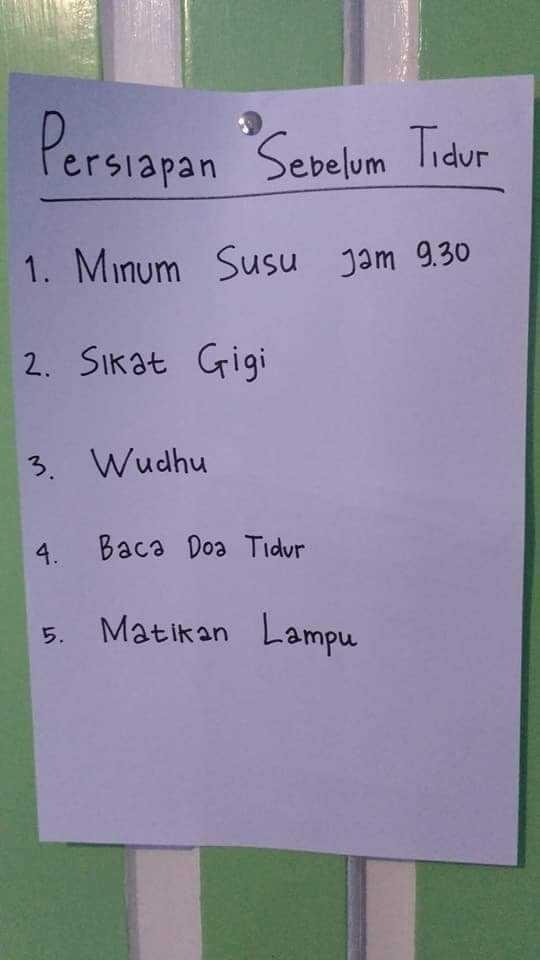 Persiapan Sebelum Tidur
1. Minum Susu Jam 9.30
2. Sikat Gigi
3. Wudhu
4. Baca Doa Tidur
5. Matikan Lampu